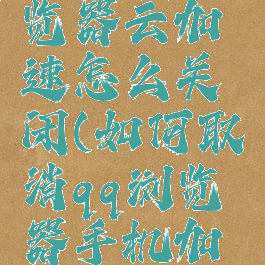 览器云加
速怎么关
闭(如何取
消qq浏览
器手机加